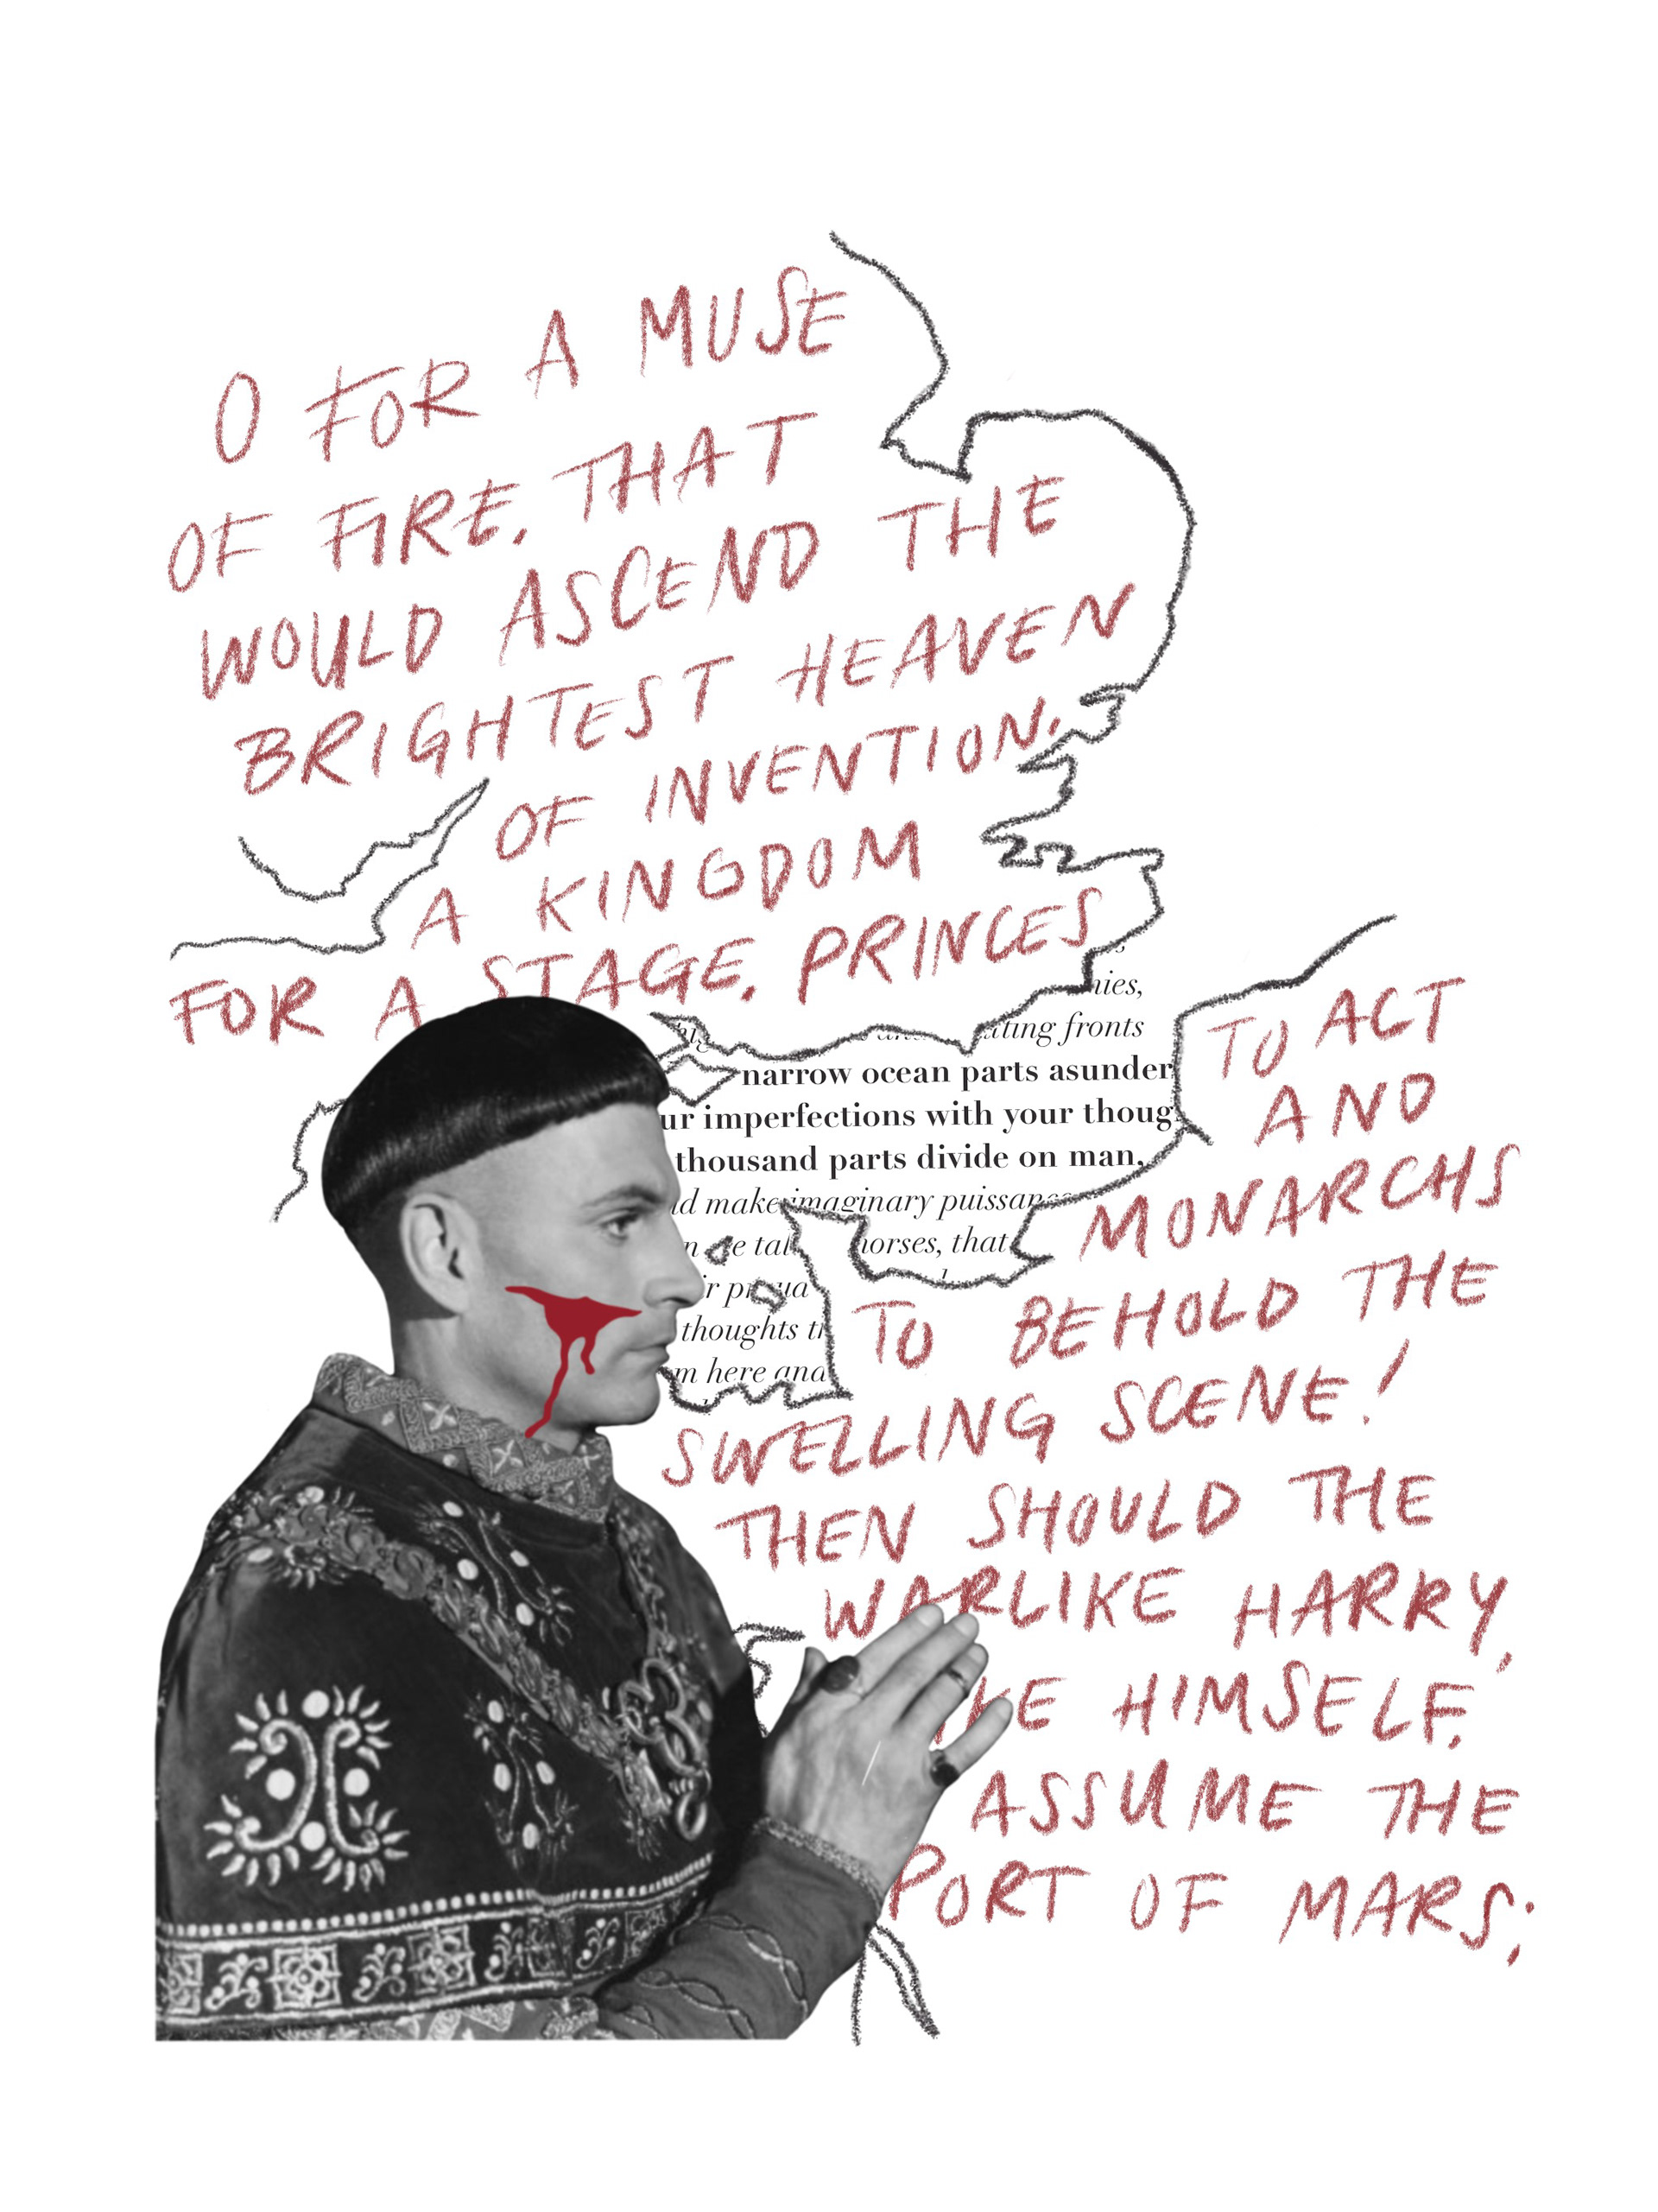 O FOR A MUSE
OF FIRE, THAT
WOULD ASCEND THE
BRIGHTEST HEAVEN
OF INVENTION,
A KINGDOM
FOR A STAGE, PRINCES
TO ACT
AND
MONARCHS
TO BEHOLD THE
SWELLING SCENE!
THEN SHOULD THE
WARLIKE HARRY,
KE HIMSELF,
ASSUME THE
PORT OF MARS;
nies,
ting fronts
narrow ocean parts asunder
ur imperfections with your thoug
thousand parts divide on man,
d make imaginary puissanc
tal horses, that
r pr
thoughts th
m here and